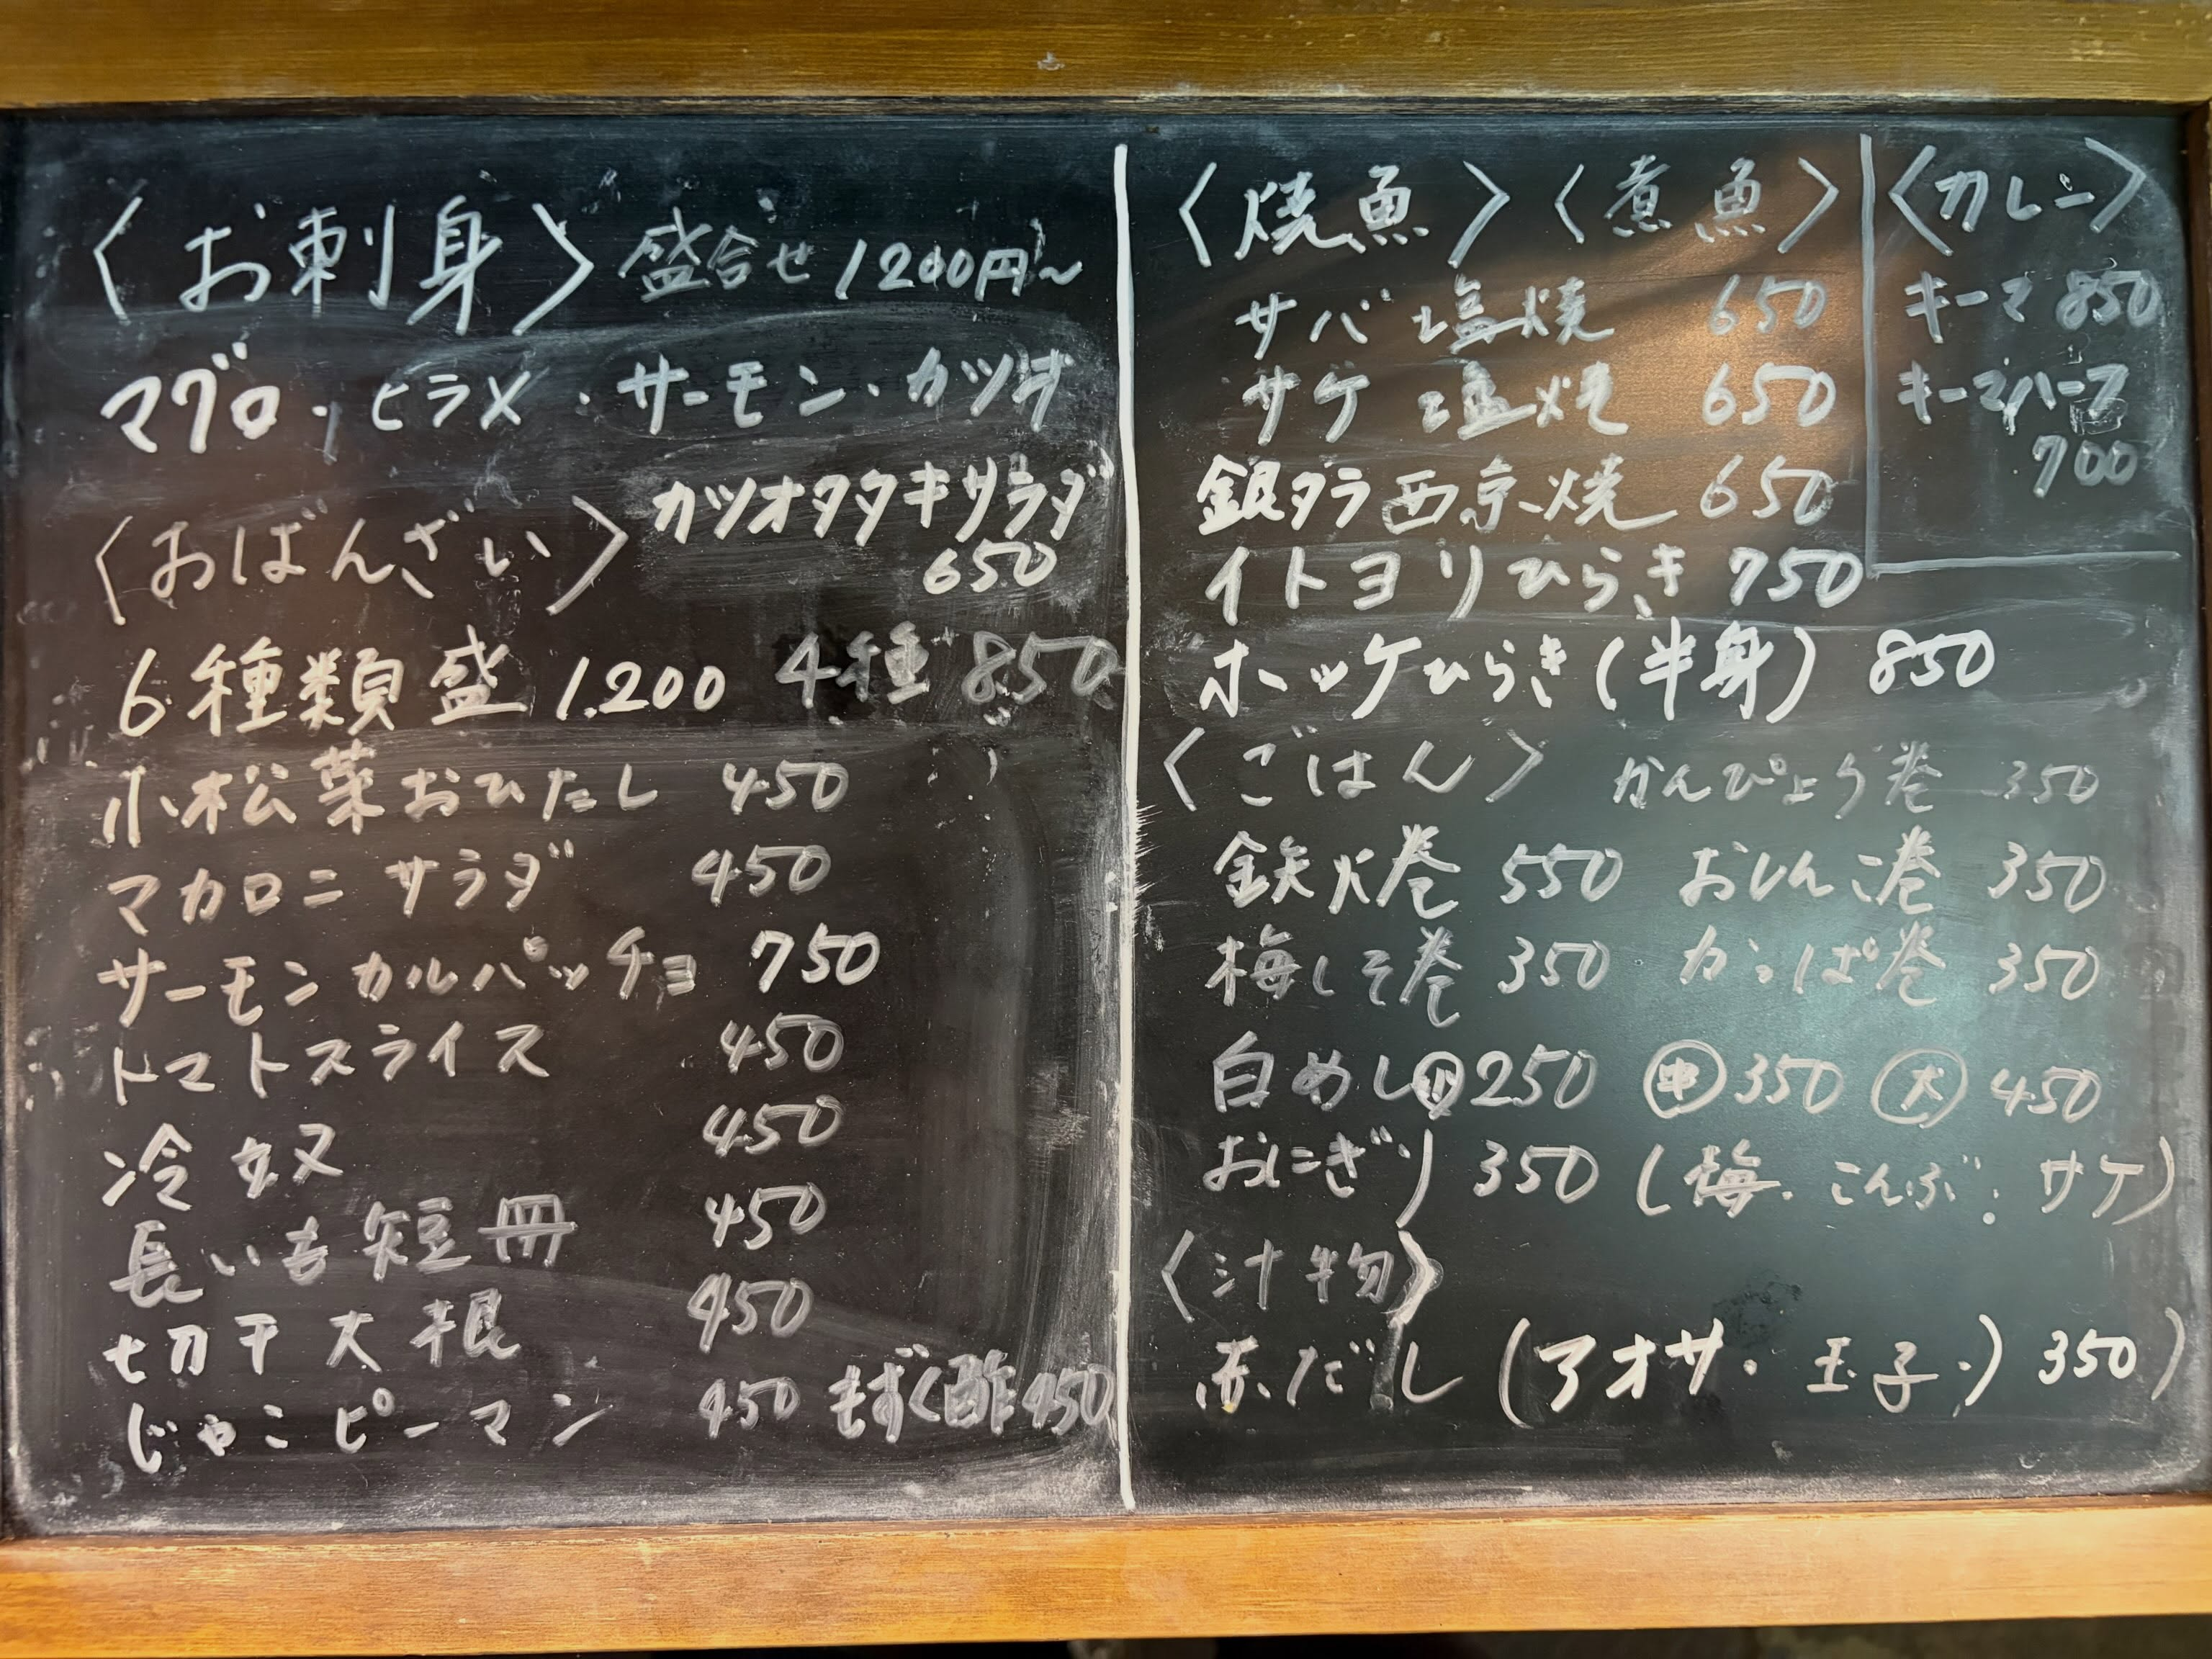 〈お刺身〉盛合せ 1200円~
マグロ・ヒラメ・サーモン・カツオ
カツオタタキサラダ
650
〈おばんざい〉
6種類盛 1.200 4種 850
小松菜おひたし 450
マカロニサラダ 450
サーモンカルパッチョ 750
トマトスライス 450
冷奴 450
長いも短冊 450
切干大根 450
じゃこピーマン 450 もずく酢 450
〈焼魚〉〈煮魚〉
サバ塩焼 650
サケ塩焼 650
銀ダラ西京焼 650
イトヨリひらき 750
ホッケひらき(半身) 850
〈カレー〉
キーマ 850
キーマハーフ
700
〈ごはん〉 かんぴょう巻 350
鉄火巻 550 おしんこ巻 350
梅しそ巻 350 かっぱ巻 350
白めし㊙250 ㊥350 大 450
おにぎり 350 (梅.こんぶ.サケ)
〈汁物〉
赤だし (アオサ・玉子・) 350)